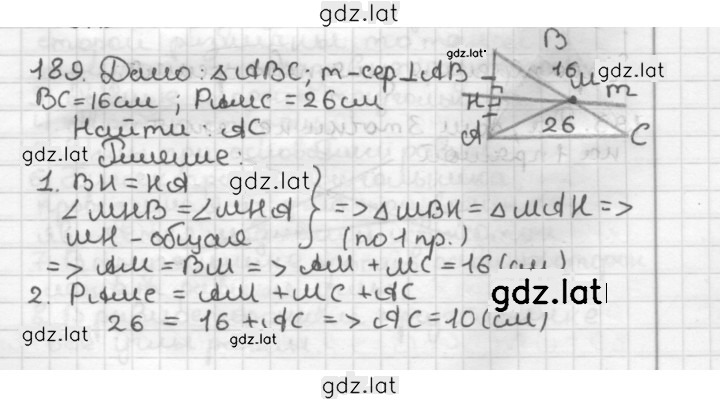 gdz.lat
189. Дано: △ABC; m-сер.⊥AB
BC=16см; P△AMC=26см
Найти: AC
Решение:
1. BH=HA
∠MHB=∠MHA } => △MBH=△MAH =>
MH-общая (по 1 пр.)
=> AM=BM => AM+MC=16(см)
2. PAMC = AM+MC+AC
26 = 16+AC => AC=10(см)
B
16 M m
H
A 26 C
gdz.lat
gdz.lat
gdz.lat
gdz.lat
gdz.lat
gdz.lat
gdz.lat
gdz.lat